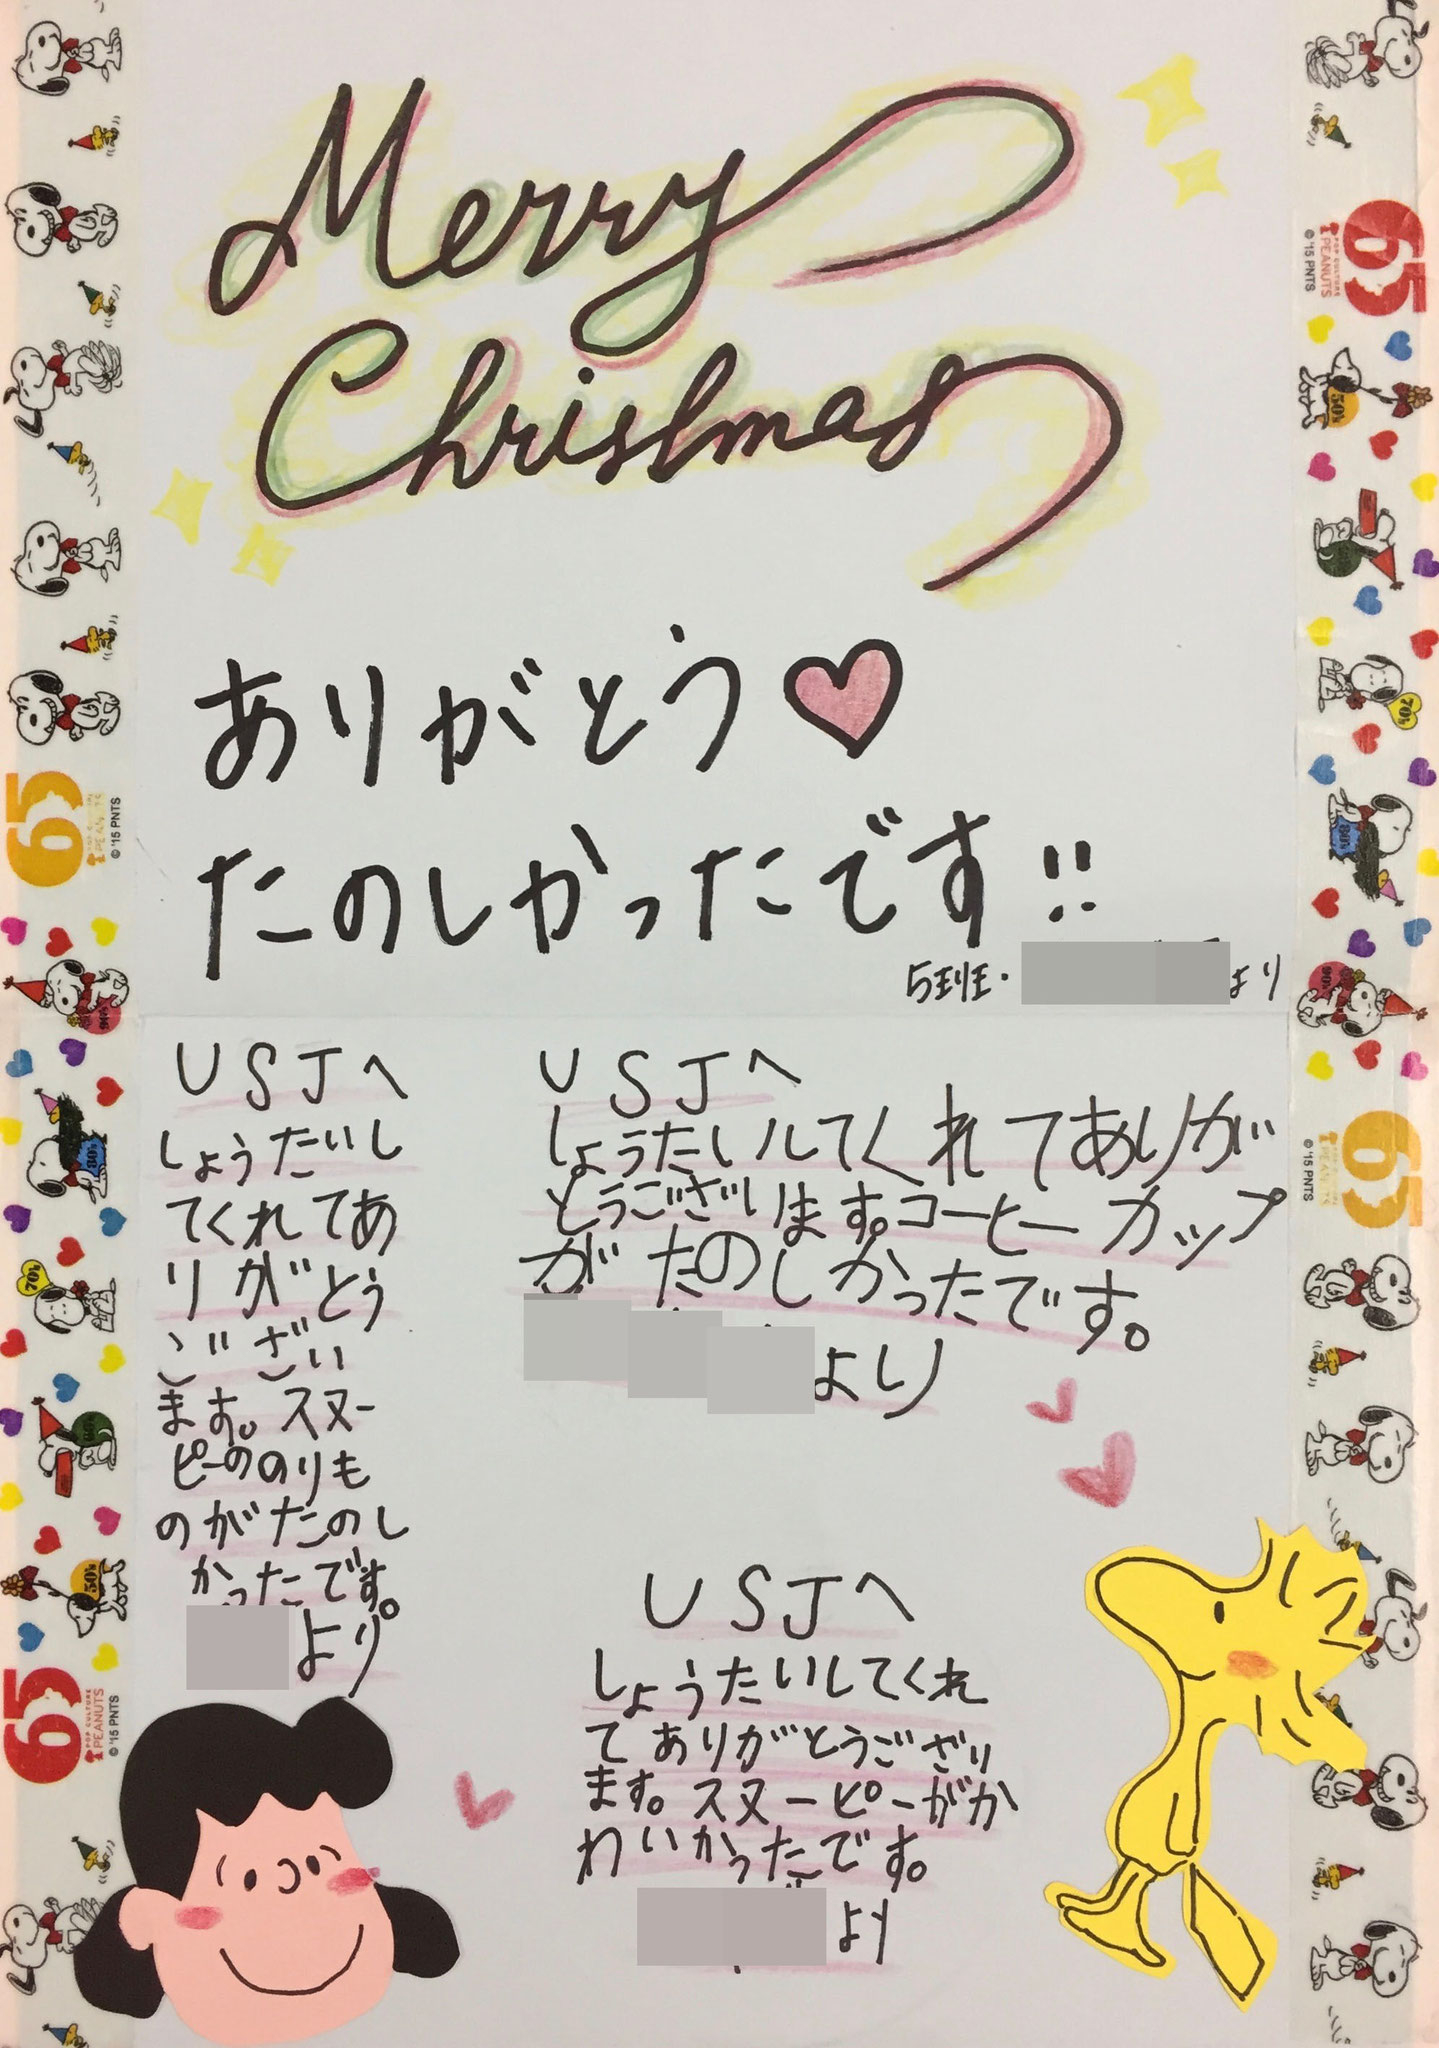 Merry
Christmas
ありがとう
たのしかったです!!
5班・
より
USJへ
しょうたいし
てくれてあ
りがとう
ござい
ます。スヌー
ピーののりも
のがたのし
かったです。
より
USJへ
しょうたいしてくれてありが
とうございます。コーヒーカップ
がたのしかったです。
より
USJへ
しょうたいしてくれ
てありがとうござい
ます。スヌーピーがか
わいかったです。
より
65
POP CULTURE
PEANUTS
© '15 PNTS
50's
70's
80's
90's
65
PEANUTS
© '15 PNTS
65
PEANUTS
© '15 PNTS
90's
80's
70's
60's
50's
65
POP CULTURE
PEANUTS
© '15 PNTS